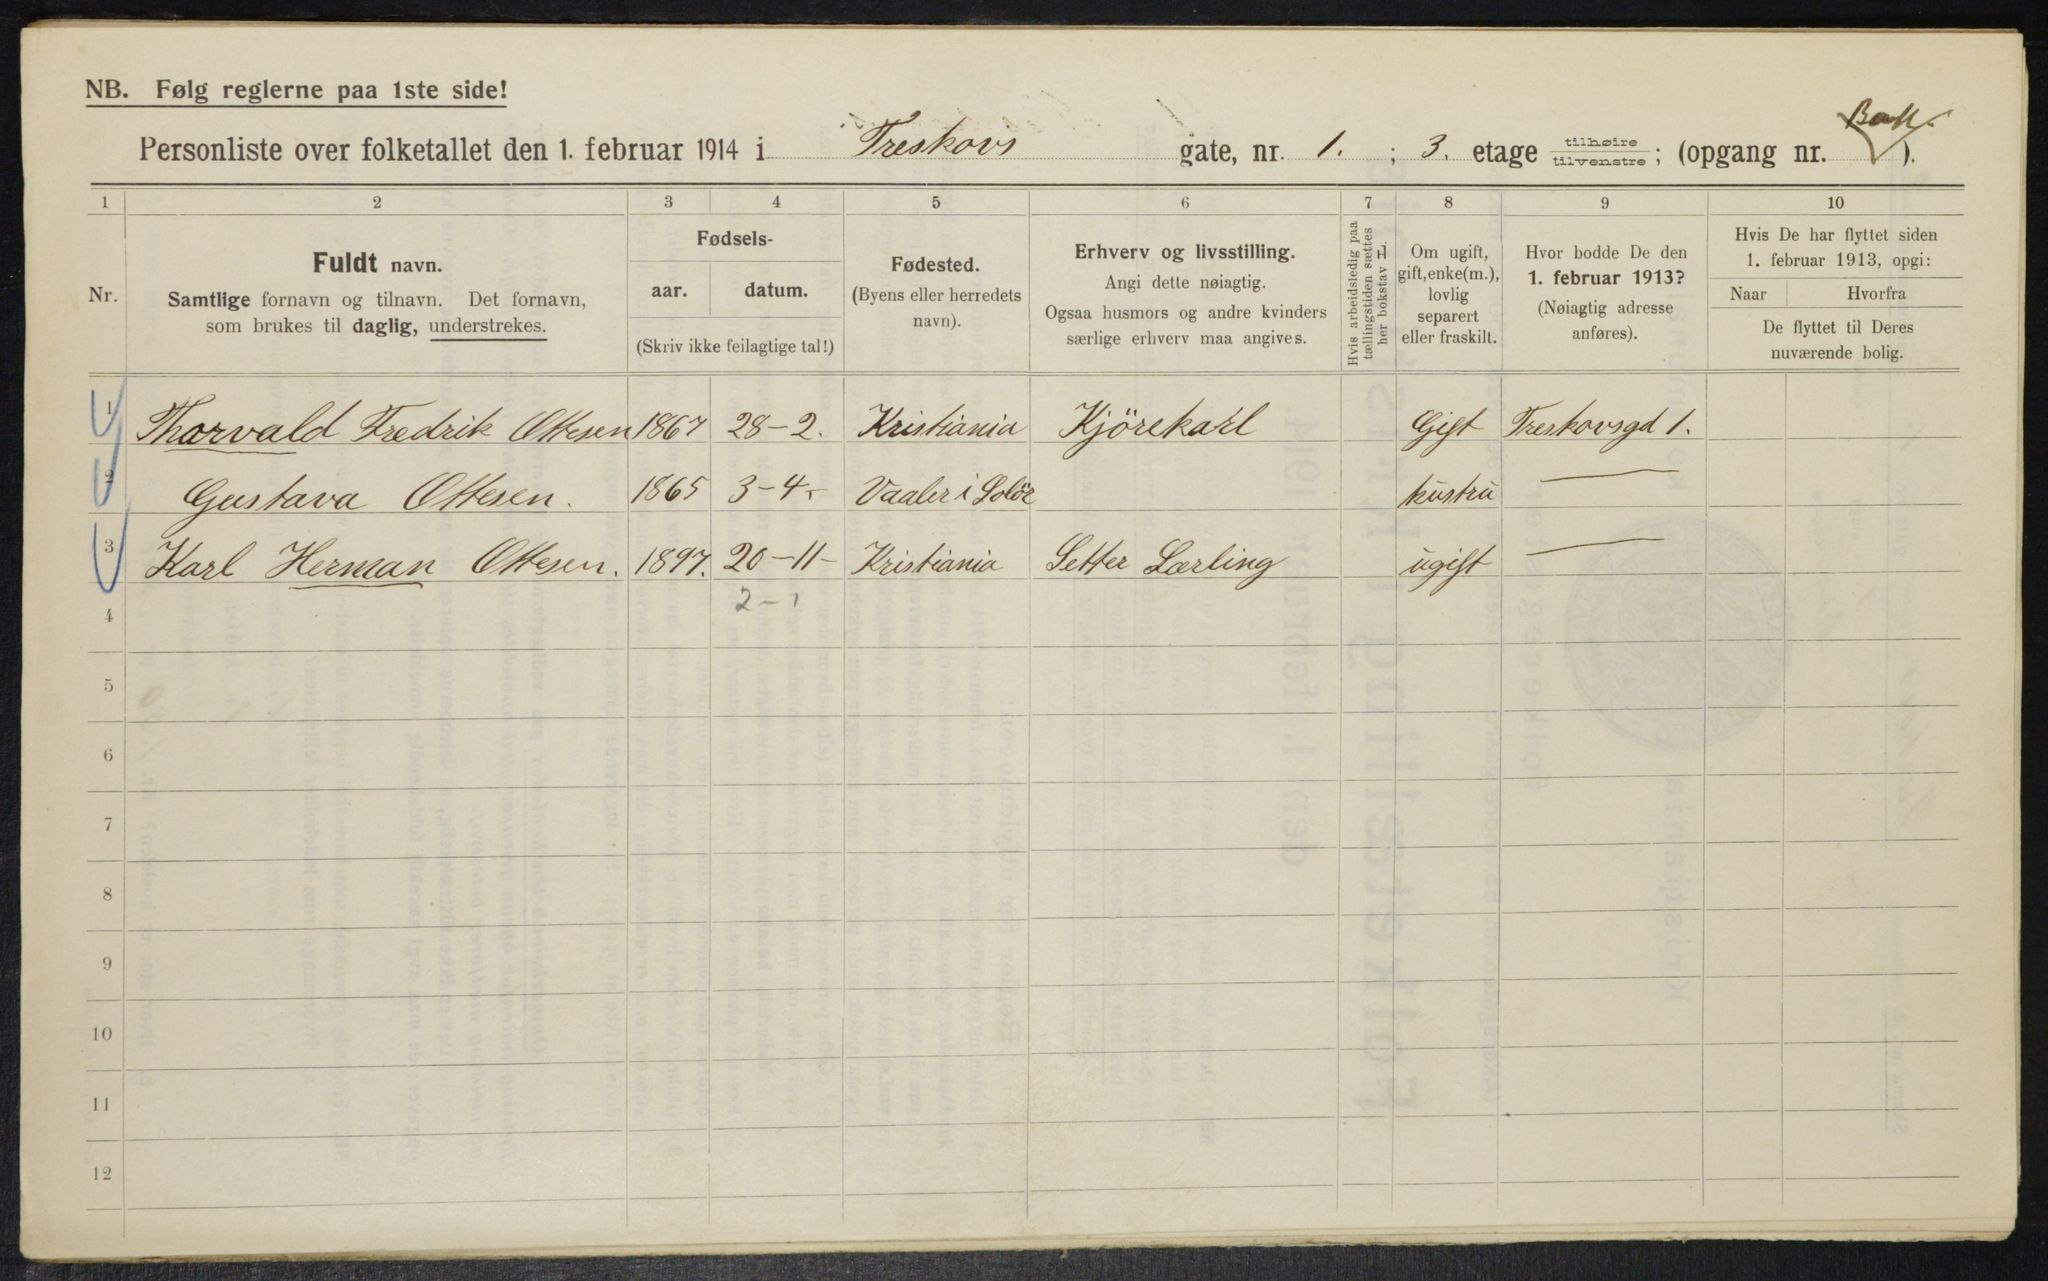 NB. Følg reglerne paa 1ste side!
Personliste over folketallet den 1. februar 1914 i Treskovs gate, nr. 1. ; 3. etage tilhøire tilvenstre; (opgang nr. Bak ).
1 2 3 4 5 6 7 8 9 10
Nr.
Fuldt navn.
Samtlige fornavn og tilnavn. Det fornavn,
som brukes til daglig, understrekes.
Fødsels-
aar. datum.
(Skriv ikke feilagtige tal!)
Fødested.
(Byens eller herredets
navn).
Erhverv og livsstilling.
Angi dette nøiagtig.
Ogsaa husmors og andre kvinders
særlige erhverv maa angives.
Hvis arbeidsledig paa
tællingstiden sættes
her bokstav L
Om ugift,
gift, enke(m.),
lovlig
separert
eller fraskilt.
Hvor bodde De den
1. februar 1913?
(Nøiagtig adresse
anføres).
Hvis De har flyttet siden
1. februar 1913, opgi:
Naar Hvorfra
De flyttet til Deres
nuværende bolig.
1 Thorvald Fredrik Ottesen 1867 28-2. Kristiania Kjörekarl Gift Treskovsgd 1.
2 Gustava Ottesen. 1865 3-4- Vaaler i Solör hustru —
3 Karl Herman Ottesen. 1897. 20-11- Kristiania Setter Lærling ugift —
4 2-1
5
6
7
8
9
10
11
12